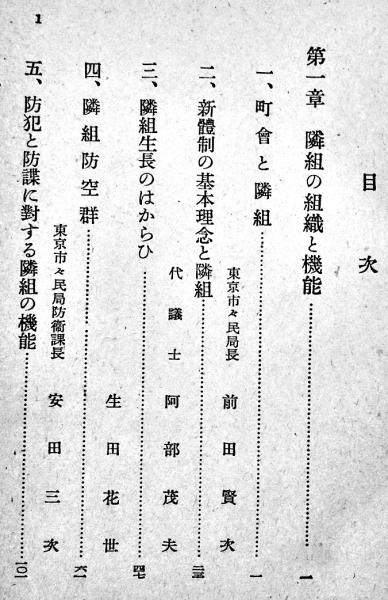 目次
第一章 隣組の組織と機能……一
一、町會と隣組……一
東京市々民局長 前田賢次
二、新體制の基本理念と隣組……三
代議士 阿部茂夫
三、隣組生長のはからひ……四七
生田花世
四、隣組防空群……六一
東京市々民局防衞課長 安田三次
五、防犯と防諜に對する隣組の機能……一〇一
1